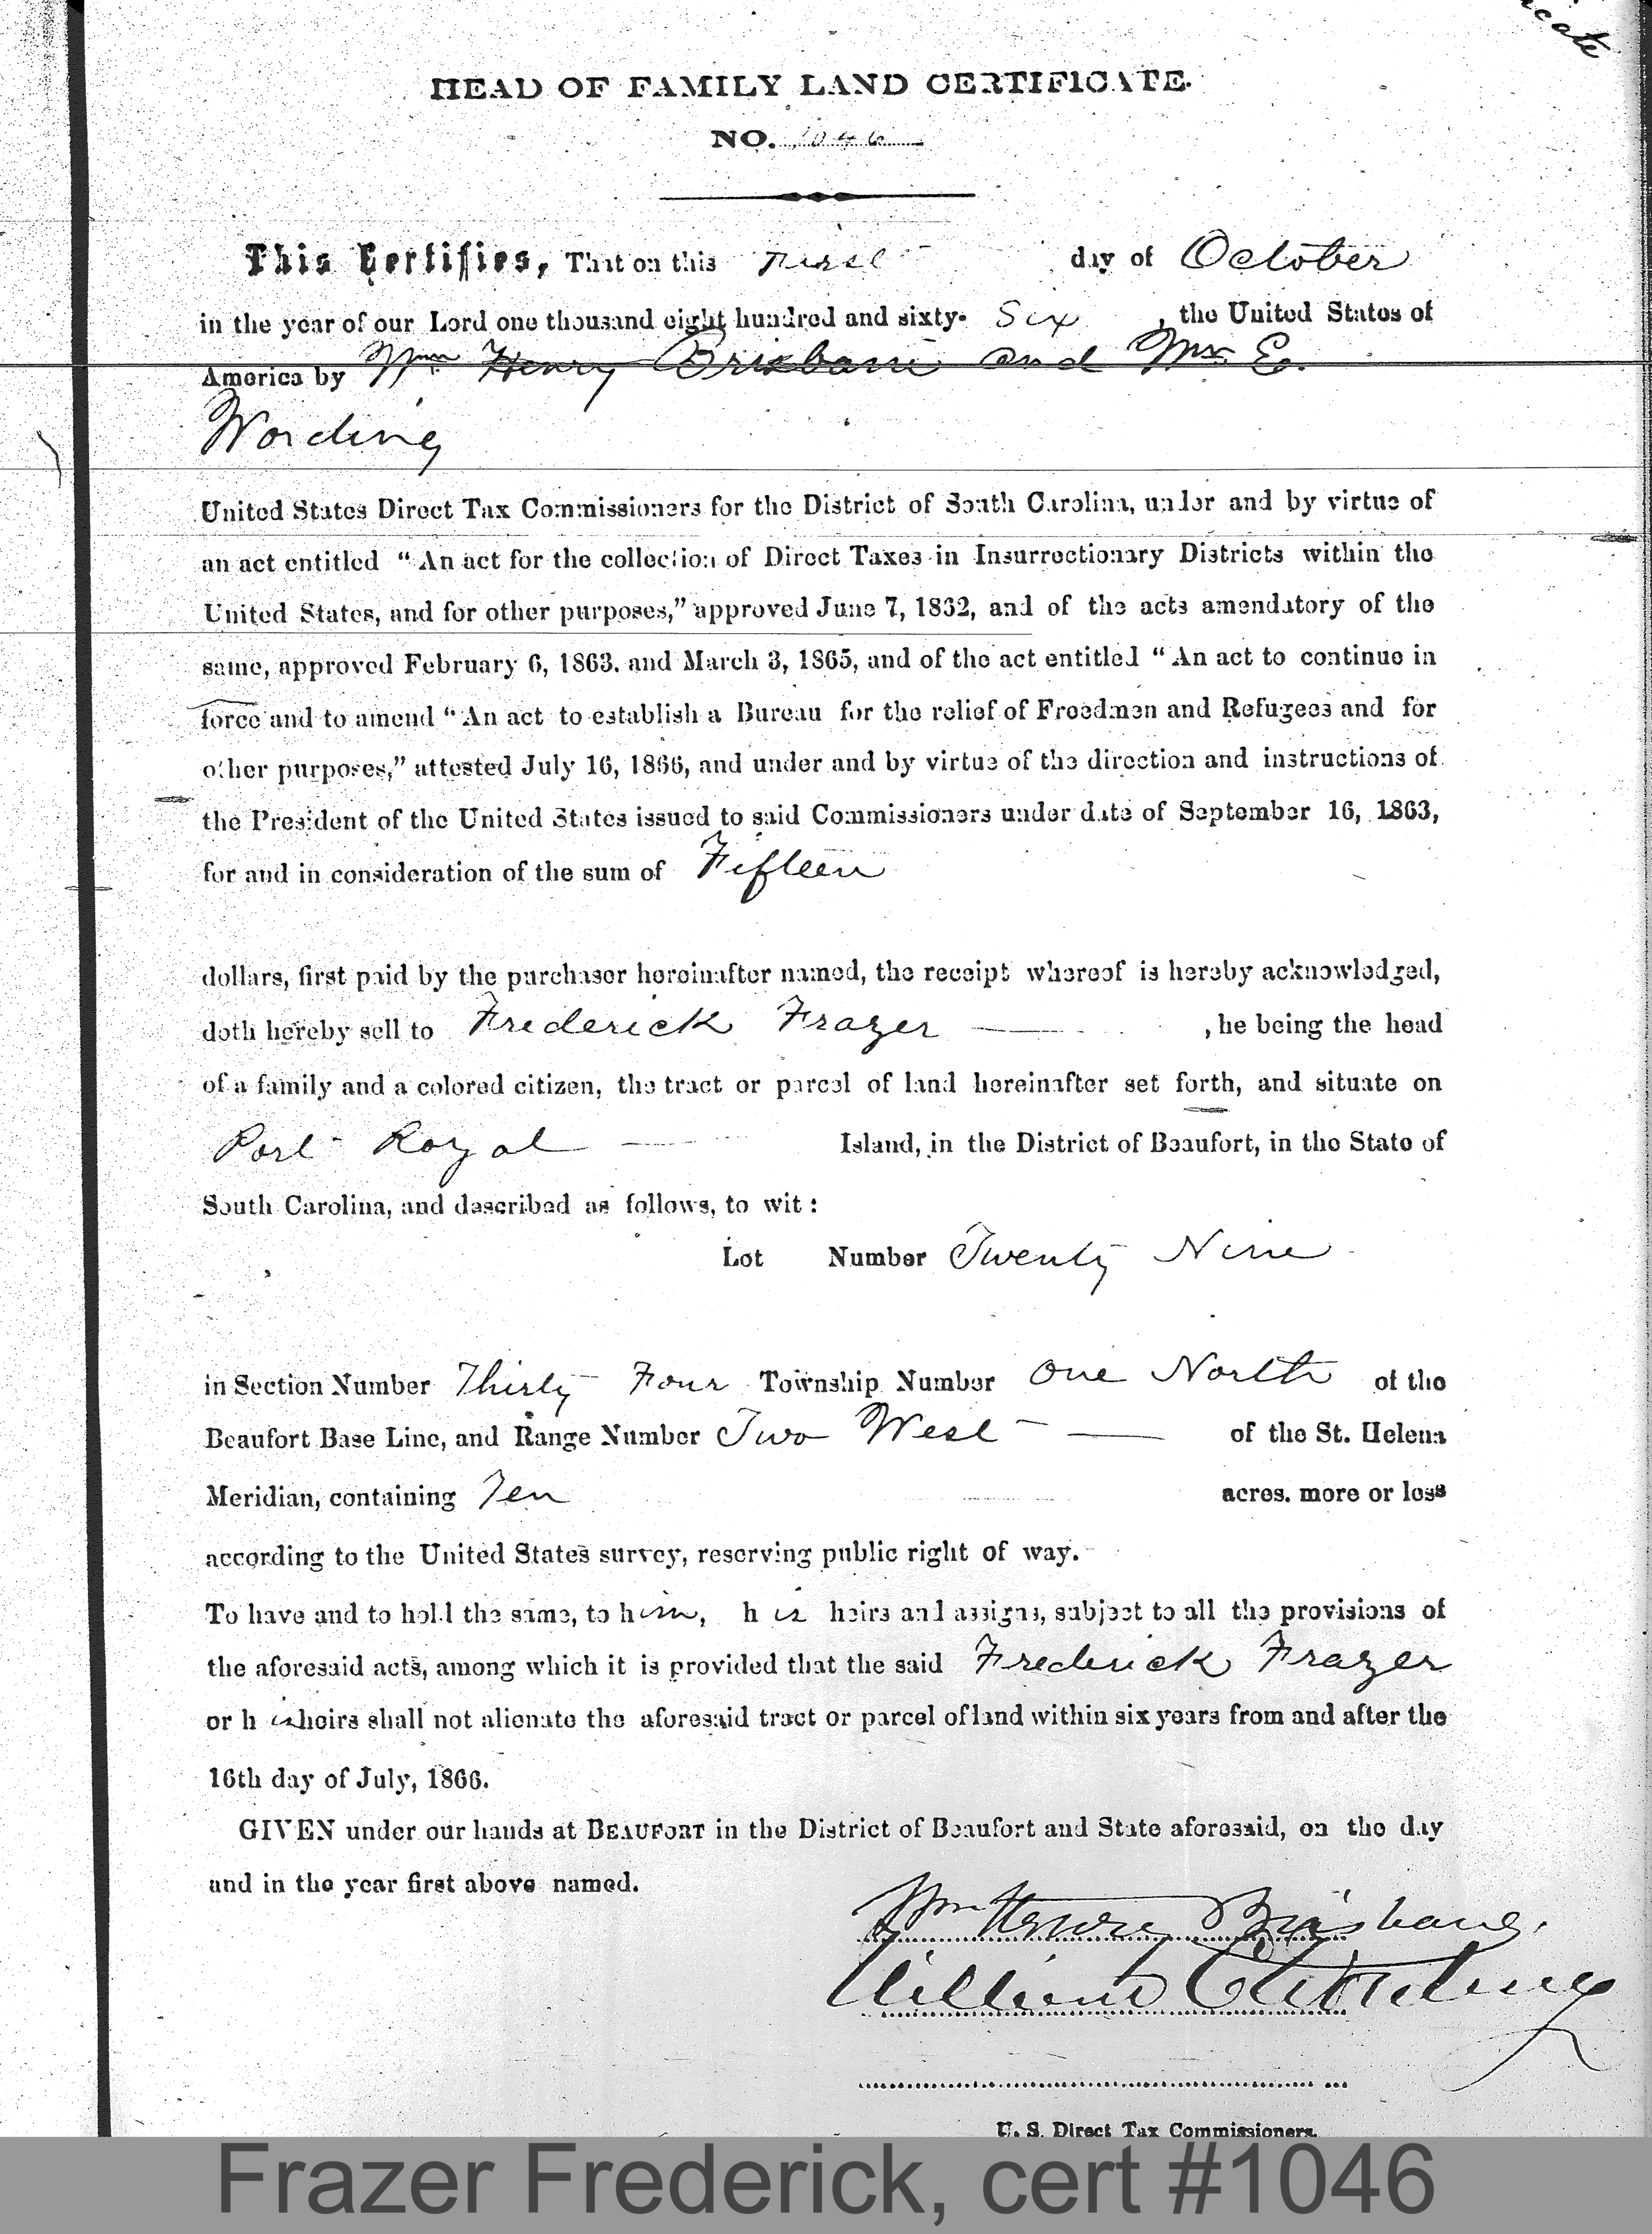 cate
HEAD OF FAMILY LAND CERTIFICATE.
NO. 1046
This Certifies, That on this First day of October
in the year of our Lord one thousand eight hundred and sixty- Six , the United States of
America by Wm Henry Brisbane and Wm E.
Wording
United States Direct Tax Commissioners for the District of South Carolina, under and by virtue of
an act entitled “An act for the collection of Direct Taxes in Insurrectionary Districts within the
United States, and for other purposes,” approved June 7, 1832, and of the acts amendatory of the
same, approved February 6, 1863. and March 3, 1865, and of the act entitled “An act to continue in
force and to amend “An act to establish a Bureau for the relief of Freedmen and Refugees and for
other purposes,” attested July 16, 1866, and under and by virtue of the direction and instructions of
the President of the United States issued to said Commissioners under date of September 16, 1863,
for and in consideration of the sum of Fifteen
dollars, first paid by the purchaser hereinafter named, the receipt whereof is hereby acknowledged,
doth hereby sell to Frederick Frazer , he being the head
of a family and a colored citizen, the tract or parcel of land hereinafter set forth, and situate on
Port Royal Island, in the District of Beaufort, in the State of
South Carolina, and described as follows, to wit:
Lot Number Twenty Nine
in Section Number Thirty Four Township Number One North of the
Beaufort Base Line, and Range Number Two West of the St. Helena
Meridian, containing Ten acres. more or less
according to the United States survey, reserving public right of way.
To have and to hold the same, to him, his heirs and assigns, subject to all the provisions of
the aforesaid acts, among which it is provided that the said Frederick Frazer
or his heirs shall not alienate the aforesaid tract or parcel of land within six years from and after the
16th day of July, 1866.
GIVEN under our hands at BEAUFORT in the District of Beaufort and State aforesaid, on the day
and in the year first above named.
Wm Henry Brisbane,
William E Wording
U. S. Direct Tax Commissioners.
Frazer Frederick, cert #1046